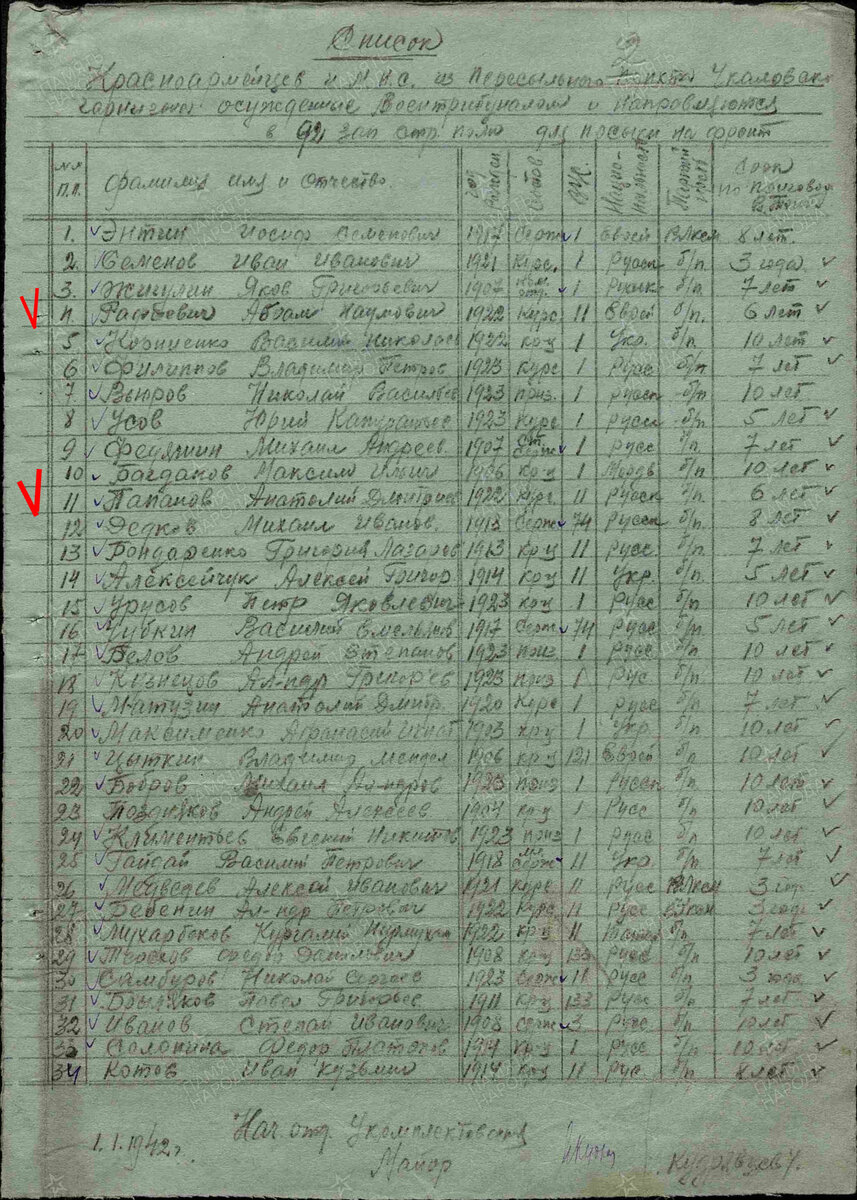 Список
2
Красноармейцев и м.н.с. из Пересыльного пункта Чкаловского
гарнизона осужденные Воентрибуналом и направляются
в 92 зап стр. полк для посылки на фронт
№№ п.п. Фамилия имя и отчество. год Состав Нацио- Срок по приговору
1. Энтин Иосиф Семенович 1917 Серж 1 Еврей ВЛКСМ 8 лет.
2. Семенов Иван Иванович 1921 Курс. 1 Русск б/п 3 года
3. Жигулин Яков Григорьевич 1907 1 Русск б/п 7 лет
4. Абрам Наумович 1922 Курс 11 Еврей б/п. 6 лет
5 Корниенко Василий Николаев 1922 кр-ц 1 Укр. б/п 10 лет
6 Филиппов Владимир Петров 1923 Курс 1 Русс б/п 7 лет
7 Николай Васильев 1923 приз. 1 Русск б/п 10 лет
8 Усов Юрий 1923 Курс 1 Русск б/п 5 лет
9 Михаил Андреев. 1907 Ст. Серж 1 Русс б/п 7 лет
10 Багданов Максим Ильич 1906 кр-ц 1 Мордв б/п 10 лет
11 Папанов Анатолий Дмитриев 1922 Курс 11 Русск б/п 6 лет
12 Дедков Михаил Иванов. 1913 Серж 74 Русск б/п. 8 лет
13 Бондаренко Григорий Лазарев 1913 кр-ц 11 Русс б/п. 7 лет
14 Алексейчук Алексей Григор 1914 кр-ц 11 Укр. б/п 5 лет
15 Урусов Петр Яковлевич 1923 кр-ц 1 Русс б/п 10 лет
16 Чубкин Василий Емельянов 1917 Серж 74 Русс б/п. 5 лет
17 Белов Андрей Степанов 1923 приз 1 Русс б/п 10 лет
18 Кузнецов Ал-ндр Григорьев 1923 приз 1 Рус. б/п. 10 лет
19 Матузин Анатолий Дмитр. 1920 Курс 1 Русс б/п. 7 лет
20 Максименко Афанасий Игнат 1903 кр-ц 1 Укр. б/п 10 лет
21 Цыткин Владимир Мендел 1906 кр-ц 121 Еврей б/п 10 лет
22 Бобров Михаил Ал-ндров 1923 приз 1 Русск б/п 10 лет
23 Поздняков Андрей Алексеев 1904 кр-ц 1 Русс б/п 10 лет
24 Климентьев Евгений Никитов 1923 приз 1 Русс б/п 10 лет
25 Гайдай Василий Петрович 1918 мл. серж 11 Укр. б/п 7 лет
26 Медведев Алексей Иванович 1921 Курс 11 Русс ВЛКСМ 3 год
27 Бебенин Ал-ндр Петрович 1922 Курс 11 Русс ВЛКСМ 3 года
28 Мухарбеков 1922 кр-ц 11 б/п 7 лет
29 Федор Данилович 1908 кр-ц 133 Русс б/п 10 лет
30 Самбуров Николай Сергеев 1923 Серж 11 Русс б/п 3 года
31 Павел Григорьев 1911 кр-ц 133 Русс б/п 7 лет
32 Иванов Степан Иванович 1908 серж 3 Русс б/п 10 лет
33 Солонина Федор Платонов 1914 кр-ц 1 Русс б/п 10 лет
34 Котов Иван Кузьмич 1914 кр-ц 11 Рус. б/п 8 лет
1.1.1942г. Нач. отд. Укомплектования
Майор Кудрявцев